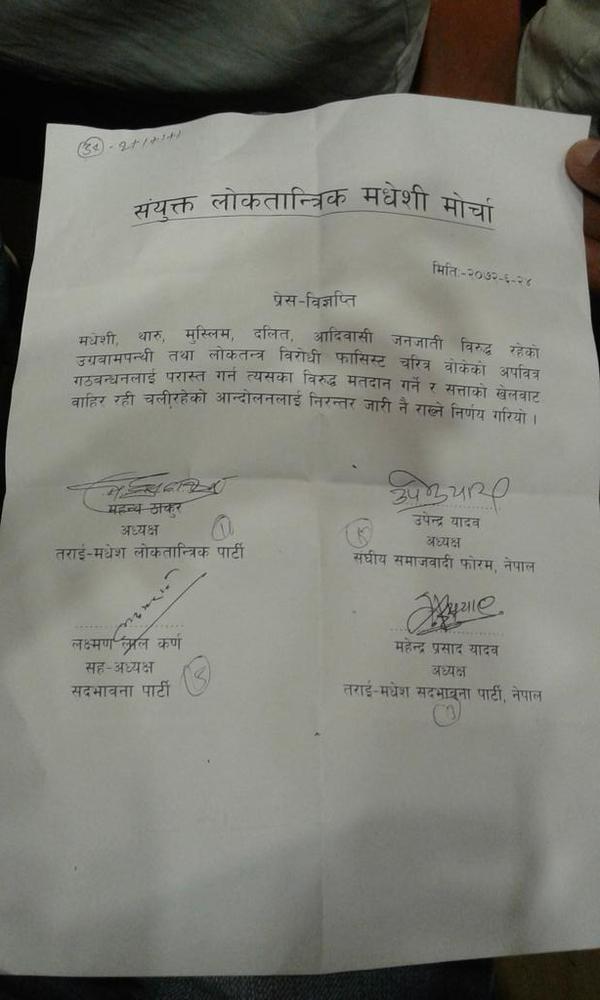 संयुक्त लोकतान्त्रिक मधेशी मोर्चा
मिति:-२०७२-६-२४
प्रेस-विज्ञप्ति
मधेशी, थारु, मुस्लिम, दलित, आदिवासी जनजाती विरुद्ध रहेको
उग्रवामपन्थी तथा लोकतन्त्र विरोधी फासिस्ट चरित्र वोकेको अपवित्र
गठबन्धनलाई परास्त गर्न त्यसका विरुद्ध मतदान गर्ने र सत्ताको खेलवाट
वाहिर रही चलीरहेको आन्दोलनलाई निरन्तर जारी नै राख्ने निर्णय गरियो ।
महन्थ ठाकुर
अध्यक्ष
तराई-मधेश लोकतान्त्रिक पार्टी
उपेन्द्र यादव
अध्यक्ष
संघीय समाजवादी फोरम, नेपाल
लक्ष्मण लाल कर्ण
सह-अध्यक्ष
सदभावना पार्टी
महेन्द्र प्रसाद यादव
अध्यक्ष
तराई-मधेश सदभावना पार्टी, नेपाल